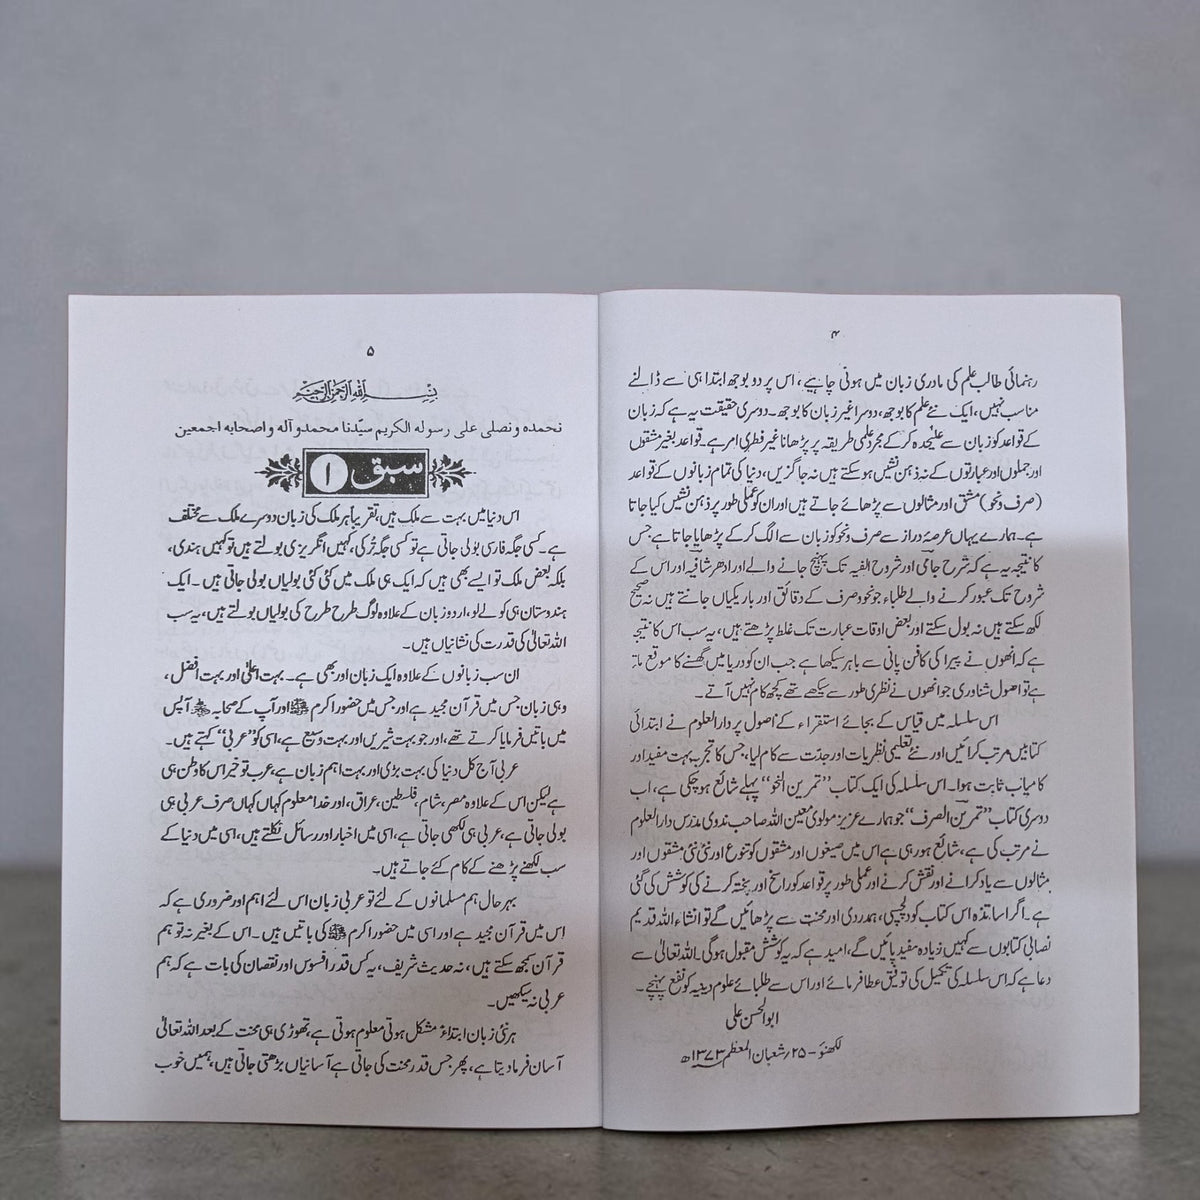 ۴
رہنمائی طالب علم کی مادری زبان میں ہونی چاہیے، اس پر دو بوجھ ابتدا ہی سے ڈالنے
مناسب نہیں، ایک نئے علم کا بوجھ، دوسرا غیر زبان کا بوجھ۔ دوسری حقیقت یہ ہے کہ زبان
کے قواعد کو زبان سے علیحدہ کر کے مجرد علمی طریقہ پر پڑھانا غیر فطری امر ہے۔ قواعد بغیر مشقوں
اور جملوں اور عبارتوں کے نہ ذہن نشیں ہو سکتے ہیں نہ جاگزیں، دنیا کی تمام زبانوں کے قواعد
(صرف و نحو) مشق اور مثالوں سے پڑھائے جاتے ہیں اور ان کو عملی طور پر ذہن نشیں کیا جاتا
ہے۔ ہمارے یہاں عرصۂ دراز سے صرف و نحو کو زبان سے الگ کر کے پڑھایا جاتا ہے، جس
کا نتیجہ یہ ہے کہ شرح جامی اور شروح الفیہ تک پہنچ جانے والے اور ادھر شافیہ اور اس کے
شروح تک عبور کرنے والے طلباء جو نحو و صرف کے دقائق اور باریکیاں جانتے ہیں نہ صحیح
لکھ سکتے ہیں نہ بول سکتے اور بعض اوقات عبارت تک غلط پڑھتے ہیں، یہ سب اس کا نتیجہ
ہے کہ انھوں نے پیراکی کا فن پانی سے باہر سیکھا ہے جب ان کو دریا میں گھسنے کا موقع ملتا
ہے تو اصول شناوری جو انھوں نے نظری طور سے سیکھے تھے کچھ کام نہیں آتے۔
اس سلسلہ میں قیاس کے بجائے استقراء کے اصول پر دارالعلوم نے ابتدائی
کتابیں مرتب کرائیں اور نئے تعلیمی نظریات اور جدّت سے کام لیا، جس کا تجربہ بہت مفید اور
کامیاب ثابت ہوا۔ اس سلسلہ کی ایک کتاب "تمرین النحو" پہلے شائع ہو چکی ہے، اب
دوسری کتاب "تمرین الصرف" جو ہمارے عزیز مولوی معین اللہ صاحب ندوی مدرس دارالعلوم
نے مرتب کی ہے، شائع ہو رہی ہے اس میں صیغوں اور مشقوں کو تنوع اور نئی نئی مشقوں اور
مثالوں سے یاد کرانے اور نقش کرنے اور عملی طور پر قواعد کو راسخ اور پختہ کرنے کی کوشش کی گئی
ہے۔ اگر اساتذہ اس کتاب کو دلچسپی، ہمدردی اور محنت سے پڑھائیں گے تو انشاء اللہ قدیم
نصابی کتابوں سے کہیں زیادہ مفید پائیں گے، امید ہے کہ یہ کوشش مقبول ہوگی۔ اللہ تعالیٰ سے
دعا ہے کہ اس سلسلہ کی تکمیل کی توفیق عطا فرمائے اور اس سے طلبائے علوم دینیہ کو نفع پہنچے۔
ابوالحسن علی
لکھنؤ – ۲۵؍ شعبان المعظم ۱۳۷۳ھ
۵
بسم اللہ الرحمن الرحیم
نحمده و نصلی علی رسوله الکریم سیّدنا محمد و آله و اصحابه اجمعین
سبق ۱
اس دنیا میں بہت سے ملک ہیں، تقریباً ہر ملک کی زبان دوسرے ملک سے مختلف
ہے۔ کسی جگہ فارسی بولی جاتی ہے تو کسی جگہ تُرکی، کہیں انگریزی بولتے ہیں تو کہیں ہندی،
بلکہ بعض ملک تو ایسے بھی ہیں کہ ایک ہی ملک میں کئی کئی بولیاں بولی جاتی ہیں۔ ایک
ہندوستان ہی کو لے لو، اردو زبان کے علاوہ لوگ طرح طرح کی بولیاں بولتے ہیں، یہ سب
اللہ تعالیٰ کی قدرت کی نشانیاں ہیں۔
ان سب زبانوں کے علاوہ ایک زبان اور بھی ہے۔ بہت اعلیٰ اور بہت افضل،
وہی زبان جس میں قرآن مجید ہے اور جس میں حضور اکرم ﷺ اور آپ کے صحابہؓ آپس
میں باتیں فرمایا کرتے تھے، اور جو بہت شیریں اور بہت وسیع ہے، اسی کو "عربی" کہتے ہیں۔
عربی آج کل دنیا کی بہت بڑی اور بہت اہم زبان ہے، عرب تو خیر اس کا وطن ہی
ہے لیکن اس کے علاوہ مصر، شام، فلسطین، عراق، اور خدا معلوم کہاں کہاں صرف عربی ہی
بولی جاتی ہے، عربی ہی لکھی جاتی ہے، اسی میں اخبار اور رسائل نکلتے ہیں، اسی میں دنیا کے
سب لکھنے پڑھنے کے کام کئے جاتے ہیں۔
بہر حال ہم مسلمانوں کے لئے تو عربی زبان اس لئے اہم اور ضروری ہے کہ
اس میں قرآن مجید ہے اور اسی میں حضور اکرم ﷺ کی باتیں ہیں۔ اس کے بغیر نہ تو ہم
قرآن سمجھ سکتے ہیں، نہ حدیث شریف، یہ کس قدر افسوس اور نقصان کی بات ہے کہ ہم
عربی نہ سیکھیں۔
ہر نئی زبان ابتداءً مشکل ہوتی معلوم ہوتی ہے، تھوڑی ہی محنت کے بعد اللہ تعالیٰ
آسان فرما دیتا ہے، پھر جس قدر محنت کی جاتی ہے آسانیاں بڑھتی جاتی ہیں، ہمیں خوب